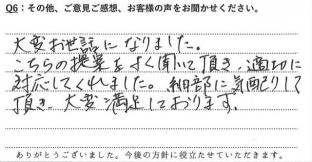 Q6：その他、ご意見ご感想、お客様の声をお聞かせください。
大変お世話になりました。
こちらの提案をよく聞いて頂き、適切に
対応してくれました。細部に気配りして
頂き、大変満足しております。
ありがとうございました。今後の方針に役立たせていただきます。